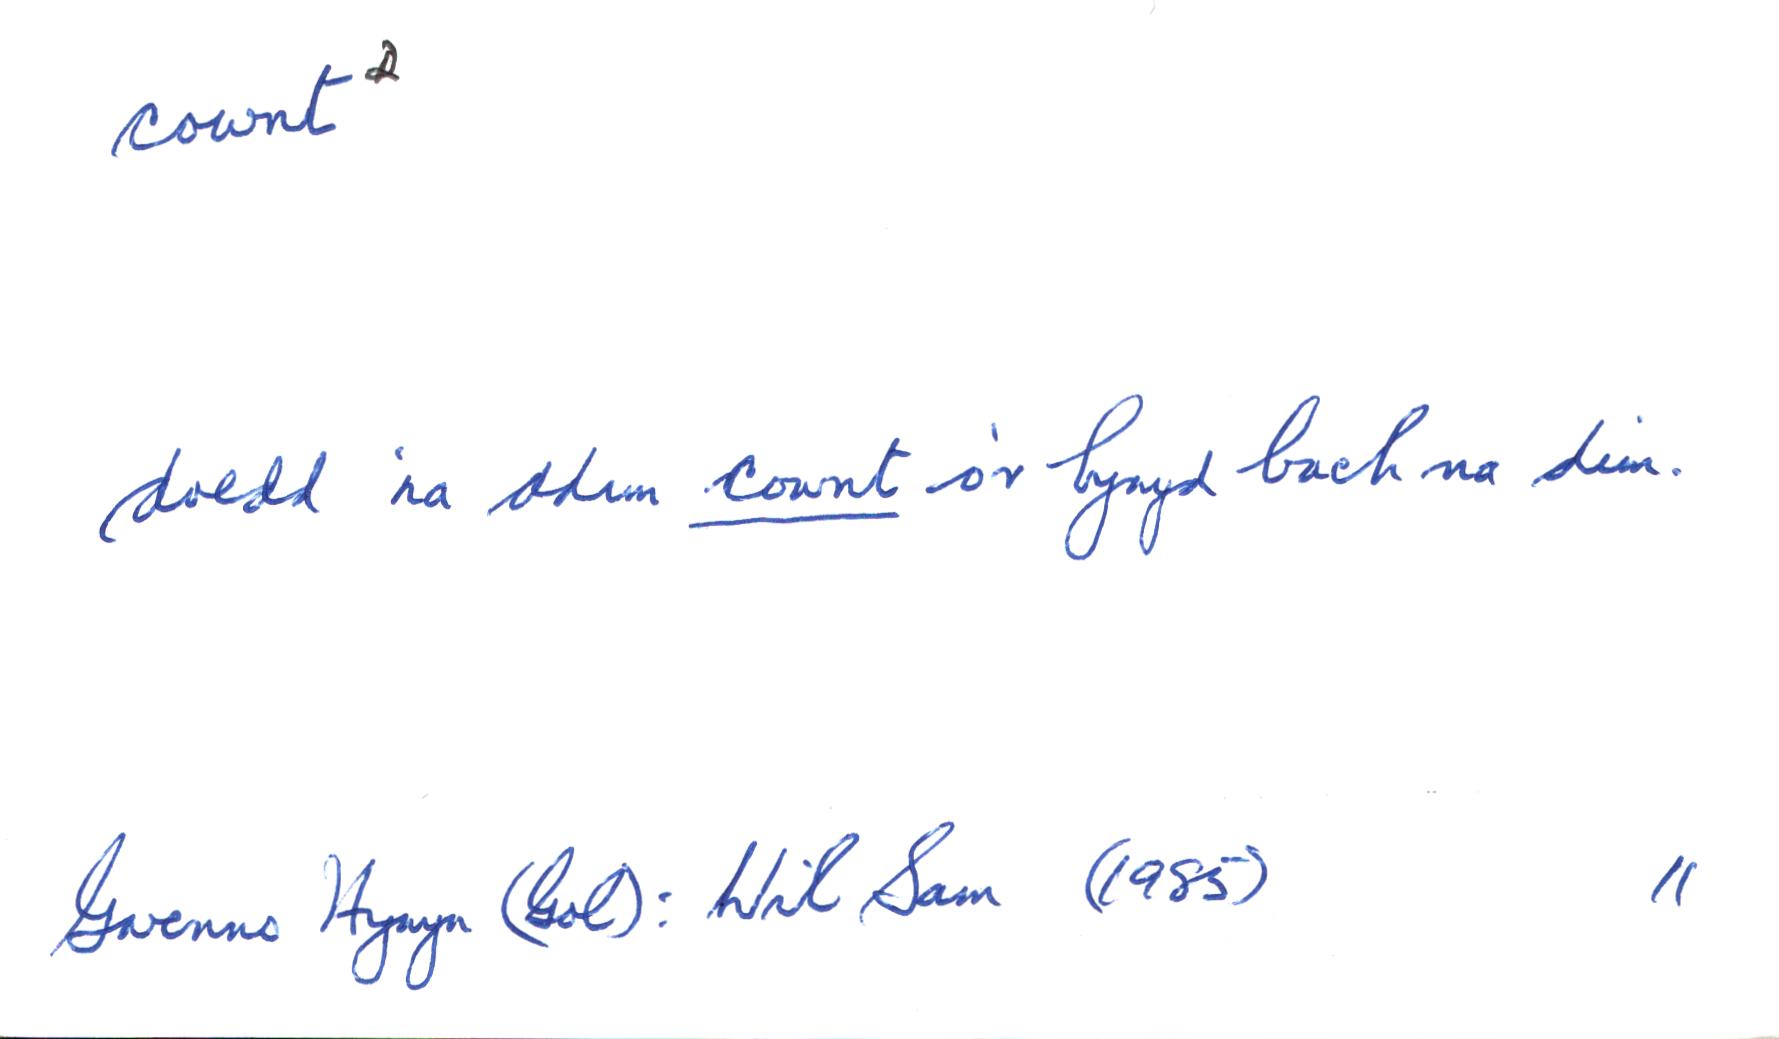 cownt²
doedd 'na ddim cownt o'r bywyd bach na dim.
Gwenno Hywyn (Gol): Wil Sam (1985) 11